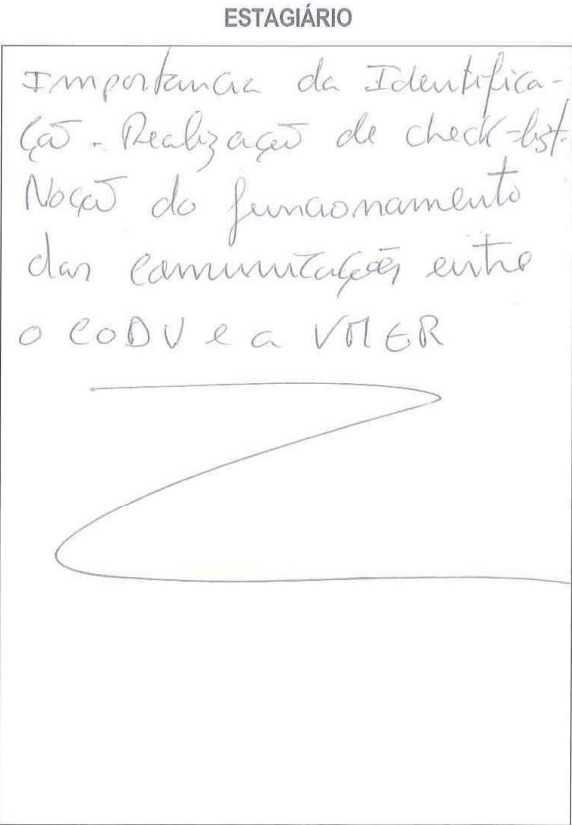 ESTAGIÁRIO
Importancia da Identifica-
ção. Realização de check-list.
Noção do funcionamento
das comunicações entre
o CODU e a VMER